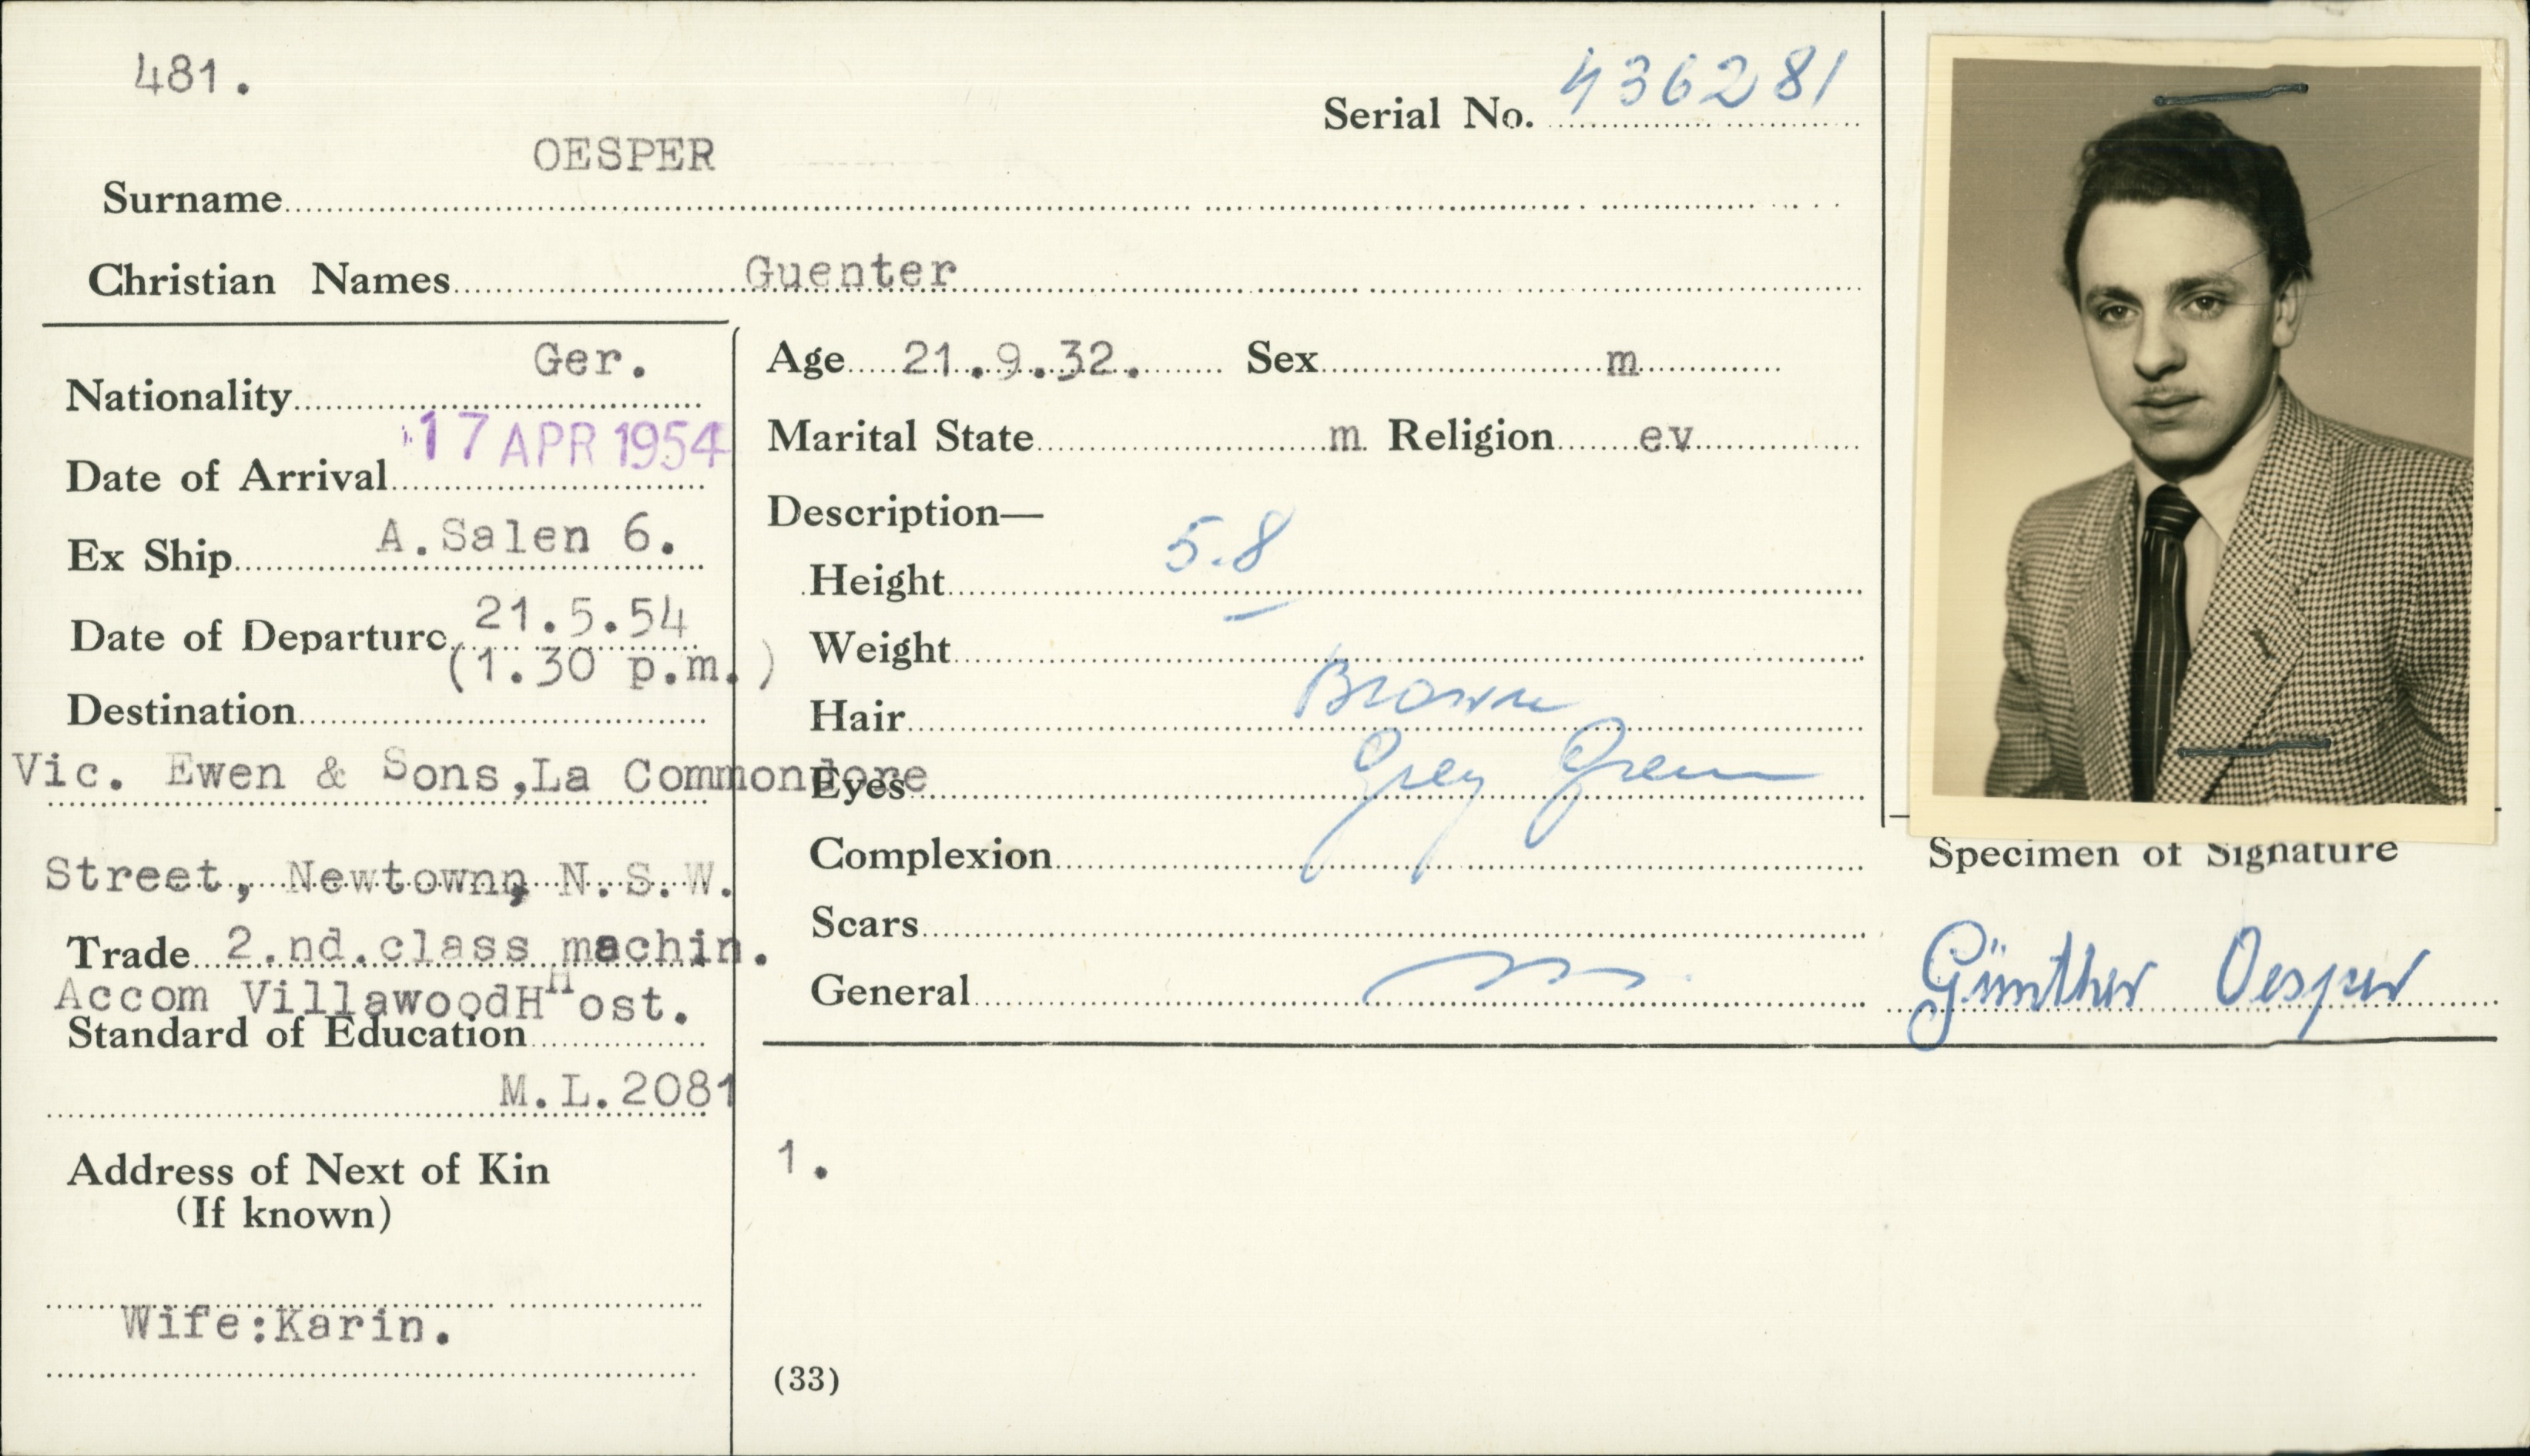 481.
Serial No. 436281
OESPER
Surname
Christian Names Guenter
Ger.
Nationality
17 APR 1954
Date of Arrival
A.Salen 6.
Ex Ship
21.5.54
Date of Departure
(1.30 p.m.)
Destination
Vic. Ewen & Sons,La Commondore
Street, Newtown, N.S.W.
Trade 2.nd.class machin.
Accom VillawoodHHost.
Standard of Education
M.L.2081
Address of Next of Kin
(If known)
Wife:Karin.
Age 21.9.32. Sex m
Marital State m Religion ev
Description—
5.8
Height
Weight
Brown
Hair
Grey Green
Eyes
Complexion
Scars
General
1.
(33)
Specimen of Signature
Günther Oesper